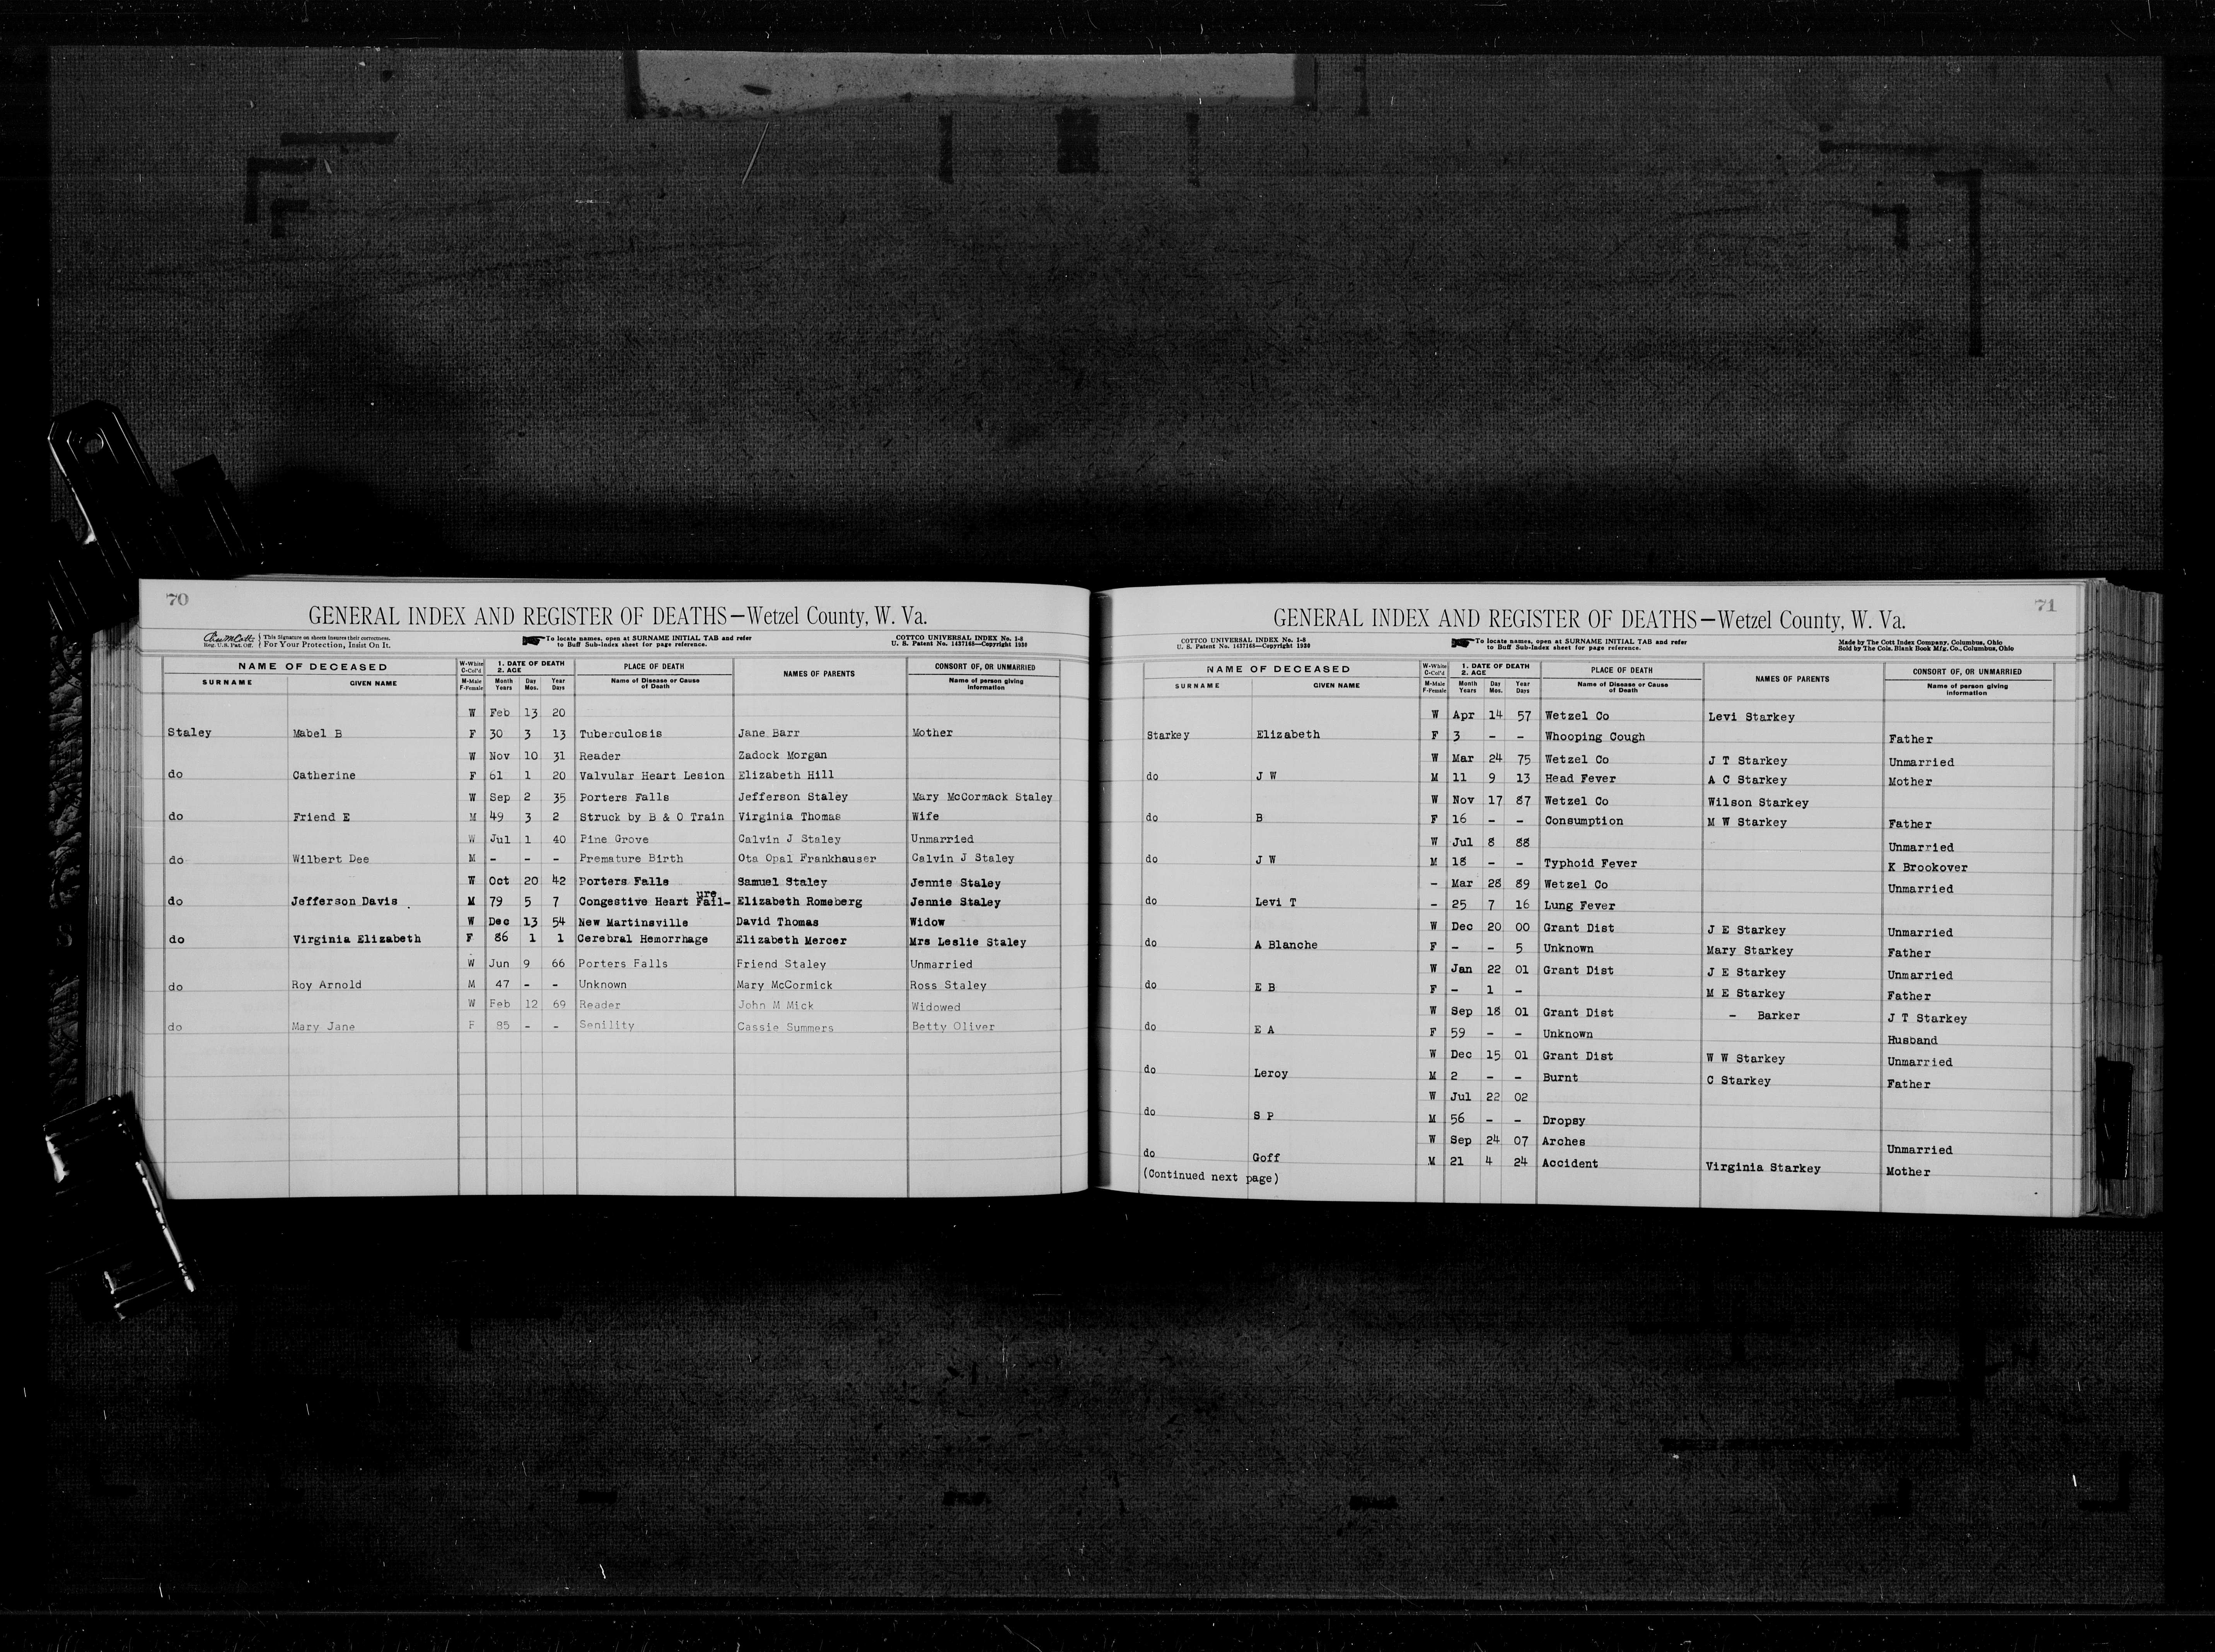 70
GENERAL INDEX AND REGISTER OF DEATHS—Wetzel County, W. Va.
Reg. U.S. Pat. Off. { This Signature on sheets insures their correctness. For Your Protection, Insist On It.
To locate names, open at SURNAME INITIAL TAB and refer to Buff Sub-Index sheet for page reference.
COTTCO UNIVERSAL INDEX No. 1-8
U. S. Patent No. 1437168—Copyright 1930
NAME OF DECEASED W-White C-Col'd 1. DATE OF DEATH 2. AGE PLACE OF DEATH NAMES OF PARENTS CONSORT OF, OR UNMARRIED
SURNAME GIVEN NAME M-Male F-Female Month Years Day Mos. Year Days Name of Disease or Cause of Death Name of person giving information
W Feb 13 20
Staley Mabel B F 30 3 13 Tuberculosis Jane Barr Mother
W Nov 10 31 Reader Zadock Morgan
do Catherine F 61 1 20 Valvular Heart Lesion Elizabeth Hill
W Sep 2 35 Porters Falls Jefferson Staley Mary McCormack Staley
do Friend E M 49 3 2 Struck by B & O Train Virginia Thomas Wife
W Jul 1 40 Pine Grove Calvin J Staley Unmarried
do Wilbert Dee M - - - Premature Birth Ota Opal Frankhauser Calvin J Staley
W Oct 20 42 Porters Falls Samuel Staley Jennie Staley
do Jefferson Davis M 79 5 7 Congestive Heart Fail-ure Elizabeth Romeberg Jennie Staley
W Dec 13 54 New Martinsville David Thomas Widow
do Virginia Elizabeth F 86 1 1 Cerebral Hemorrhage Elizabeth Mercer Mrs Leslie Staley
W Jun 9 66 Porters Falls Friend Staley Unmarried
do Roy Arnold M 47 - - Unknown Mary McCormick Ross Staley
W Feb 12 69 Reader John M Mick Widowed
do Mary Jane F 85 - - Senility Cassie Summers Betty Oliver
71
GENERAL INDEX AND REGISTER OF DEATHS—Wetzel County, W. Va.
COTTCO UNIVERSAL INDEX No. 1-8
U. S. Patent No. 1437168—Copyright 1930
To locate names, open at SURNAME INITIAL TAB and refer to Buff Sub-Index sheet for page reference.
Made by The Cott Index Company, Columbus, Ohio
Sold by The Cols. Blank Book Mfg. Co., Columbus, Ohio
NAME OF DECEASED W-White C-Col'd 1. DATE OF DEATH 2. AGE PLACE OF DEATH NAMES OF PARENTS CONSORT OF, OR UNMARRIED
SURNAME GIVEN NAME M-Male F-Female Month Years Day Mos. Year Days Name of Disease or Cause of Death Name of person giving information
W Apr 14 57 Wetzel Co Levi Starkey
Starkey Elizabeth F 3 - - Whooping Cough Father
W Mar 24 75 Wetzel Co J T Starkey Unmarried
do J W M 11 9 13 Head Fever A C Starkey Mother
W Nov 17 87 Wetzel Co Wilson Starkey
do B F 16 - - Consumption M W Starkey Father
W Jul 8 88 Unmarried
do J W M 18 - - Typhoid Fever K Brookover
- Mar 28 89 Wetzel Co Unmarried
do Levi T - 25 7 16 Lung Fever
W Dec 20 00 Grant Dist J E Starkey Unmarried
do A Blanche F - - 5 Unknown Mary Starkey Father
W Jan 22 01 Grant Dist J E Starkey Unmarried
do E B F - 1 - M E Starkey Father
W Sep 18 01 Grant Dist - Barker J T Starkey
do E A F 59 - - Unknown Husband
W Dec 15 01 Grant Dist W W Starkey Unmarried
do Leroy M 2 - - Burnt C Starkey Father
W Jul 22 02
do S P M 56 - - Dropsy
W Sep 24 07 Arches Unmarried
do Goff M 21 4 24 Accident Virginia Starkey Mother
(Continued next page)